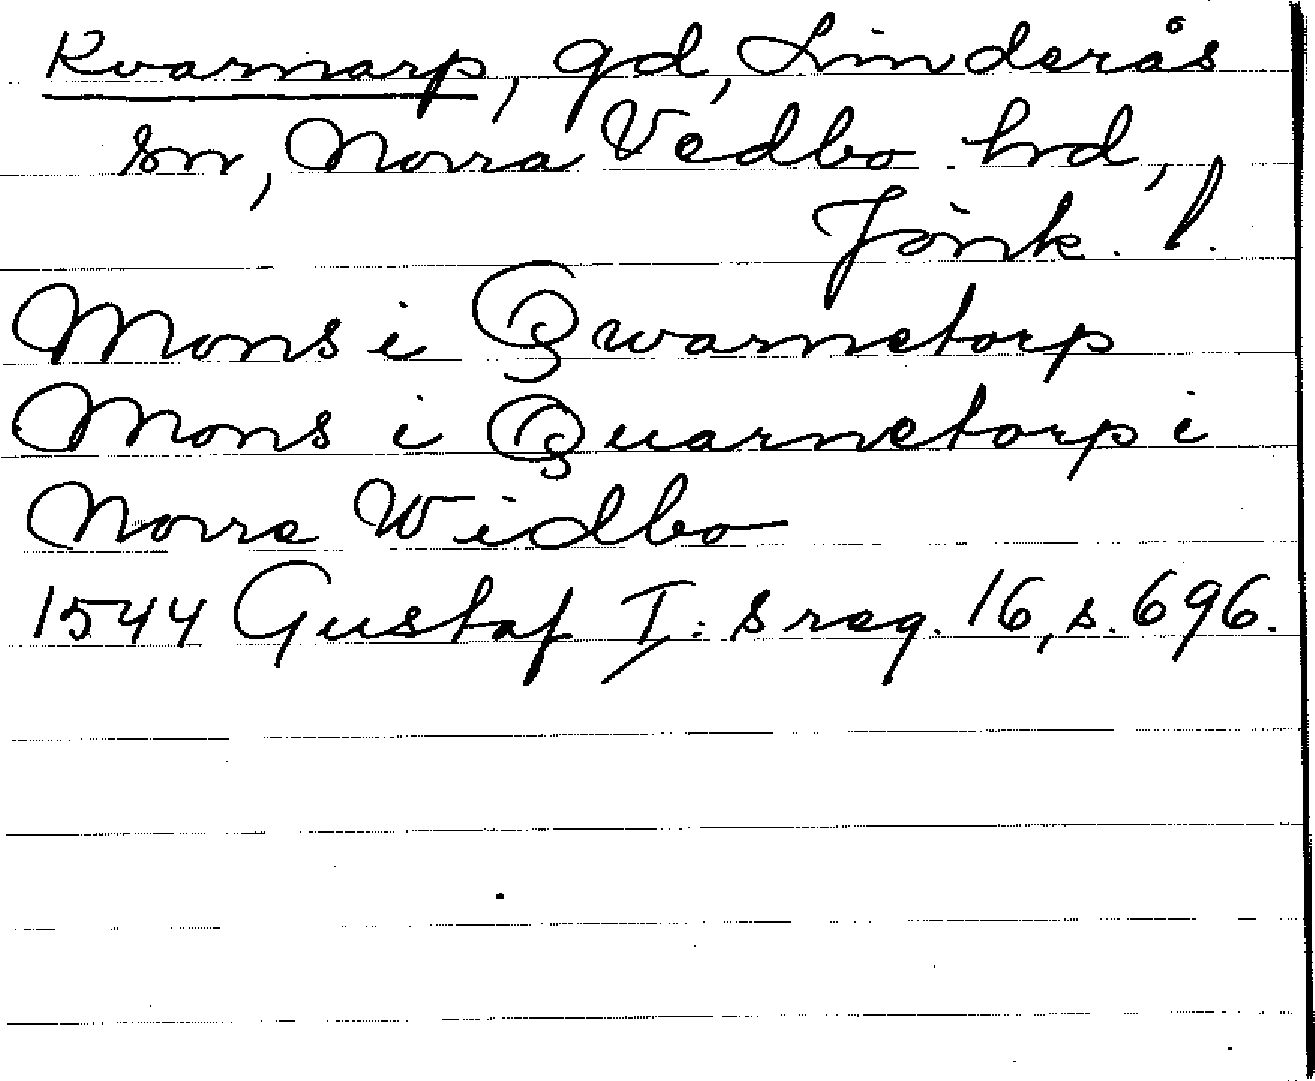 Kvarnarp, gd, Linderås
sn, Norra Vedbo hrd,
Jönk. l.
Mons i Qwarnetorp
Mons i Quarnetorp i
Norre Widbo
1544 Gustaf I:s reg. 16, s. 696.